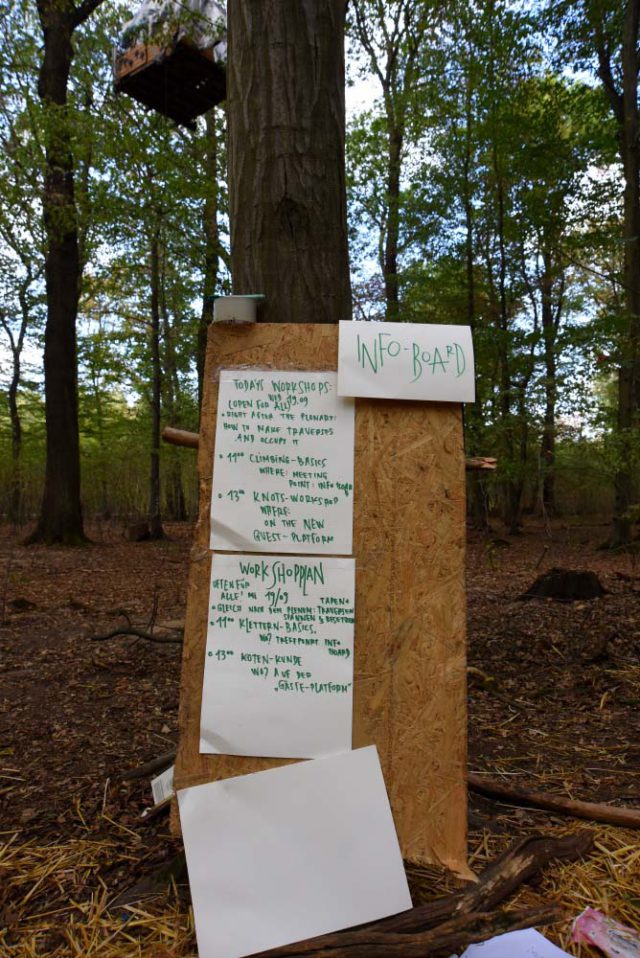 INFO-BOARD
TODAYS WORKSHOPS:
WED 19.09
(OPEN FOR ALL)
• RIGHT AFTER THE PLENARY:
HOW TO MAKE TRAVERSES
AND OCCUPY IT
• 11⁰⁰ CLIMBING-BASICS
WHERE: MEETING
POINT: INFO BOARD
• 13⁰⁰ KNOTS-WORKSHOP
WHERE:
ON THE NEW
GUEST-PLATFORM
WORKSHOPPLAN
OFFEN FÜR
ALLE! MI 19/09
• GLEICH NACH DEM PLENUM: TRAVERSEN
SPANNEN & BESETZEN
• 11⁰⁰ KLETTERN-BASICS,
WO? TREFFPUNKT INFO
BOARD
• 13⁰⁰ KOTEN-KUNDE
WO? AUF DER
„GÄSTE-PLATFORM"